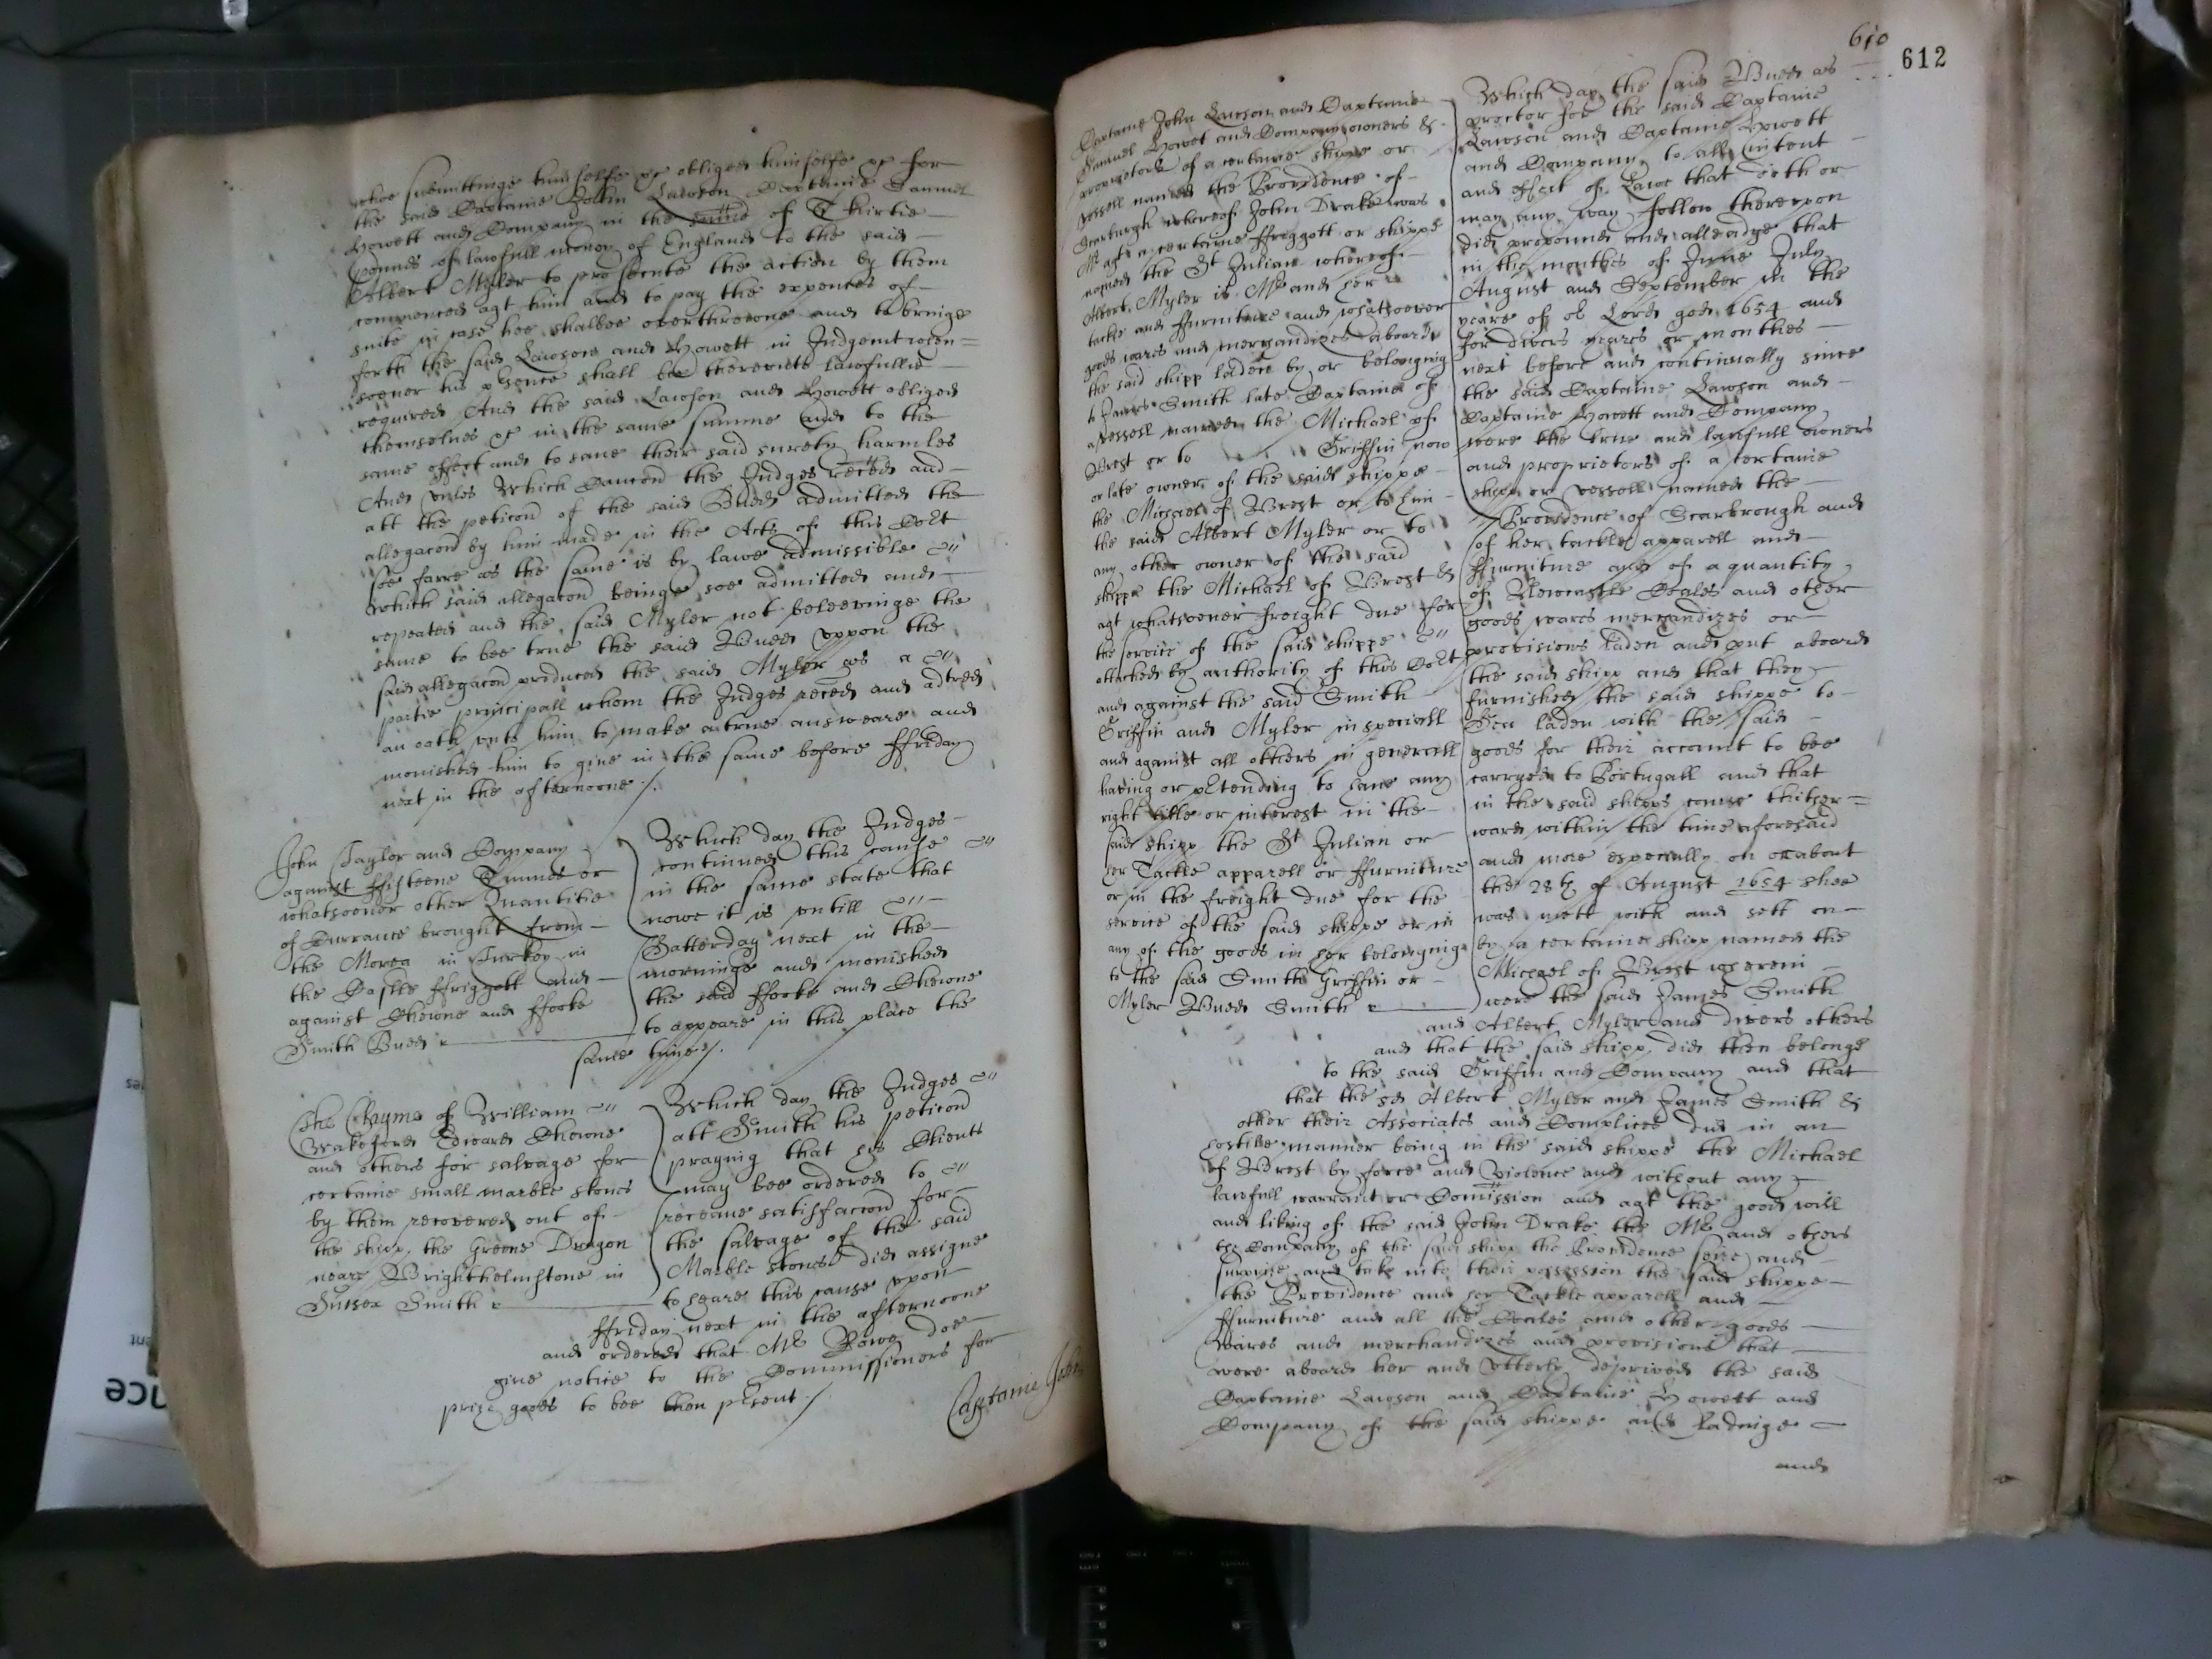 whoe submittinge himselfe &c obliged himselfe &c for
the said Captaine John Lawson Captaine Samuel
Howett and Company in the summe of Thirtie
pounds of lawfull money of England to the said
Albert Myler to prosecute the action by them
commenced agt him and to pay the expences of
suite in case hee shalbee overthrowne and to bringe
forth the said Lawson and Howett in Judgemt when=
soever his pͬsence shall bee therewith lawfullie
required And the said Lawson and Howett obliged
themselves &c in the same summe and to the
same effect and to save their said surety harmles
And unles Which Caucon the Judges reced and
att the peticon of the said Budd admitted the
allegacon by him made in the Acts of this Cort
soe farre as the same is by lawe admissible
which said allegacon beinge soe admitted and
repeated and the said Myler not beleevinge the
same to bee true the said Budd uppon the
said allegacon produced the said Myler as a
partie principall whom the Judges reced and adͬred
an oath unto him to make a true answeare and
monished him to give in the same before ffriday
next in the afternoone ./.
John Taylor and Company
against ffifteene Tunnes or
whatsoever other Quantitie
of Currance brought from
the Morea in Turkey in
the Castle ffriggott and
against Cheivne and ffooke
Smith Budd
Which day the Judges
continued this cause
in the same state that
nowe it is untill
Satterday next in the
morninge and monished
the said ffooke and Cheivne
to appeare in this place the
same tyme ./.
The Clayme of William
Wakeford Edward Cheivne
and others for salvage for
certaine small marble stones
by them recovered out of
the shipp the Greene Dragon
neare Brighthelmstone in
Sussex Smith
Which day the Judges
att Smith his peticon
praying that his Clients
may bee ordered to
receave satisfaccon for
the salvage of the said
Marble stones did assigne
to heare this cause upon
ffriday next in the afternoone
and ordered that Mr Rowe doe
give notice to the Commissioners for
prize goods to bee then pͬsent ./.
Captaine John
610
612
Captaine John Lawson and Captaine
Samuel Howet and Company owners &
proprietors of a certaine shippe or
vessell named the Providence of
Scarburgh whereof John Drake was
Mr agt a certaine ffriggott or shippe
named the St Julian whereof
Albert Myler is Mr and her
tackle and ffurniture and whatsoever
goods wares and merchandizes aboard
the said shipp laden by or belonging
to James Smith late Captaine of
a vessell named the Michael of
Brest or to Griffin now
or late owner of the said shippe
the Michael of Brest or to him
the said Albert Myler or to
any other owner of the said
shippe the Michael of Brest &
agt whatsoever freight due for
the service of the said shippe
attached by authority of this Cort
and against the said Smith
Griffin and Myler in speciall
and against all others in generall
having or pͬtending to have any
right title or interest in the
said shipp the St Julian or
her Tackle apparell or ffurniture
or in the freight due for the
service of the said shippe or in
any of the goods in her belonginge
to the said Smith Griffin or
Myler Budd Smith
Which day the said Budd as
proctor for the said Captaine
Lawson and Captaine Howett
and Company to all intent
and effect of Lawe that doth or
may any way follow thereupon
did propound and alleadge that
in the months of June July
August and September in the
yeare of oͬ Lord god 1654 and
for divers yeares or monthes
next before and continually since
the said Captaine Lawson and
Captaine Howett and Company
were the true and lawfull owners
and proprietors of a certaine
shipp or vessell named the
Providence of Scarbrough and
of her tackle apparell and
ffurniture and of a quantity
of Newcastle Coales and other
goods wares merchandizes or
provisions laden and put aboard
the said shipp and that they
furnished the said shippe to
Sea laden with the said
goods for their account to bee
carryed to Portugall and that
in the said shipps course thither=
ward within the time aforesaid
and more especially on or about
the 28th of August 1654 shee
was mett with and sett on
by a certaine shipp named the
Michael of Brest wherein
were the said James Smith
and Albert Myler and divers others
and that the said shipp did then belonge
to the said Griffin and Company and that
that the sd Albert Myler and James Smith &
other their Associates and Complices did in an
hostile manner being in the said shippe the Michael
of Brest by force and violence and without any
lawfull warrant or Comission and agt the good will
and liking of the said John Drake the Mr and others
the Company of the said shipp the Providence seize and
surprize and take into their possession the said shippe
the Providence and her Tackle apparell and
ffurniture and all the Coales and other goods
Wares and merchandizes and provisions that
were aboard her and utterly deprived the said
Captaine Lawson and Captaine Howett and
Company of the said shippe and ladinge
and